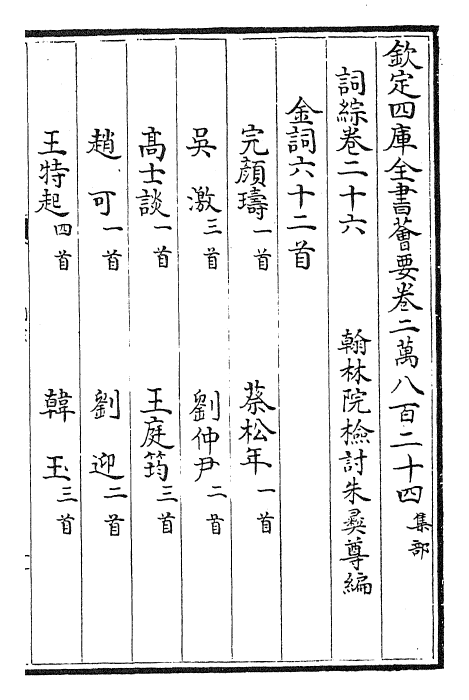 欽定四庫全書薈要卷二萬八百二十四 集部
詞綜卷二十六 翰林院檢討朱彝尊編
金詞六十二首
完顏璹一首 蔡松年一首
吳激三首 劉仲尹二首
高士談一首 王庭筠三首
趙可一首 劉迎二首
王特起四首 韓玉三首